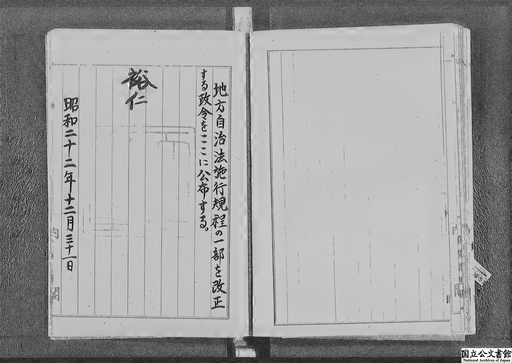 地方自治法施行規程の一部を改正
する政令をここに公布する。
裕仁
昭和二十二年十二月三十一日
内
閣
国立公文書館
National Archives of Japan